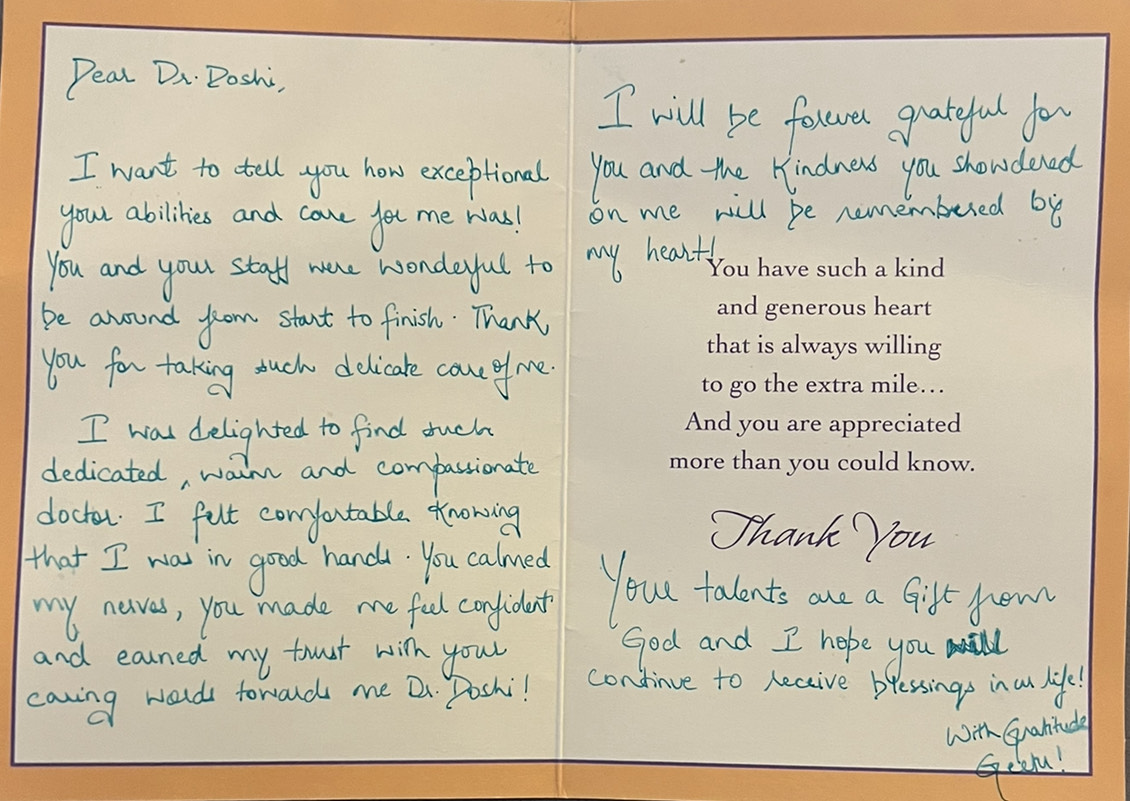 Dear Dr. Doshi,
I want to tell you how exceptional
your abilities and care for me was!
You and your staff were wonderful to
be around from start to finish. Thank
you for taking such delicate care of me.
I was delighted to find such
dedicated, warm and compassionate
doctor. I felt comfortable knowing
that I was in good hands. You calmed
my nerves, you made me feel confident
and earned my trust with your
caring words towards me Dr. Doshi!
I will be forever grateful for
you and the kindness you showdered
on me will be remembered by
my heart!
You have such a kind
and generous heart
that is always willing
to go the extra mile...
And you are appreciated
more than you could know.
Thank You
Your talents are a Gift from
God and I hope you will
continue to receive blessings in ur life!
With Gratitude
Geetu!